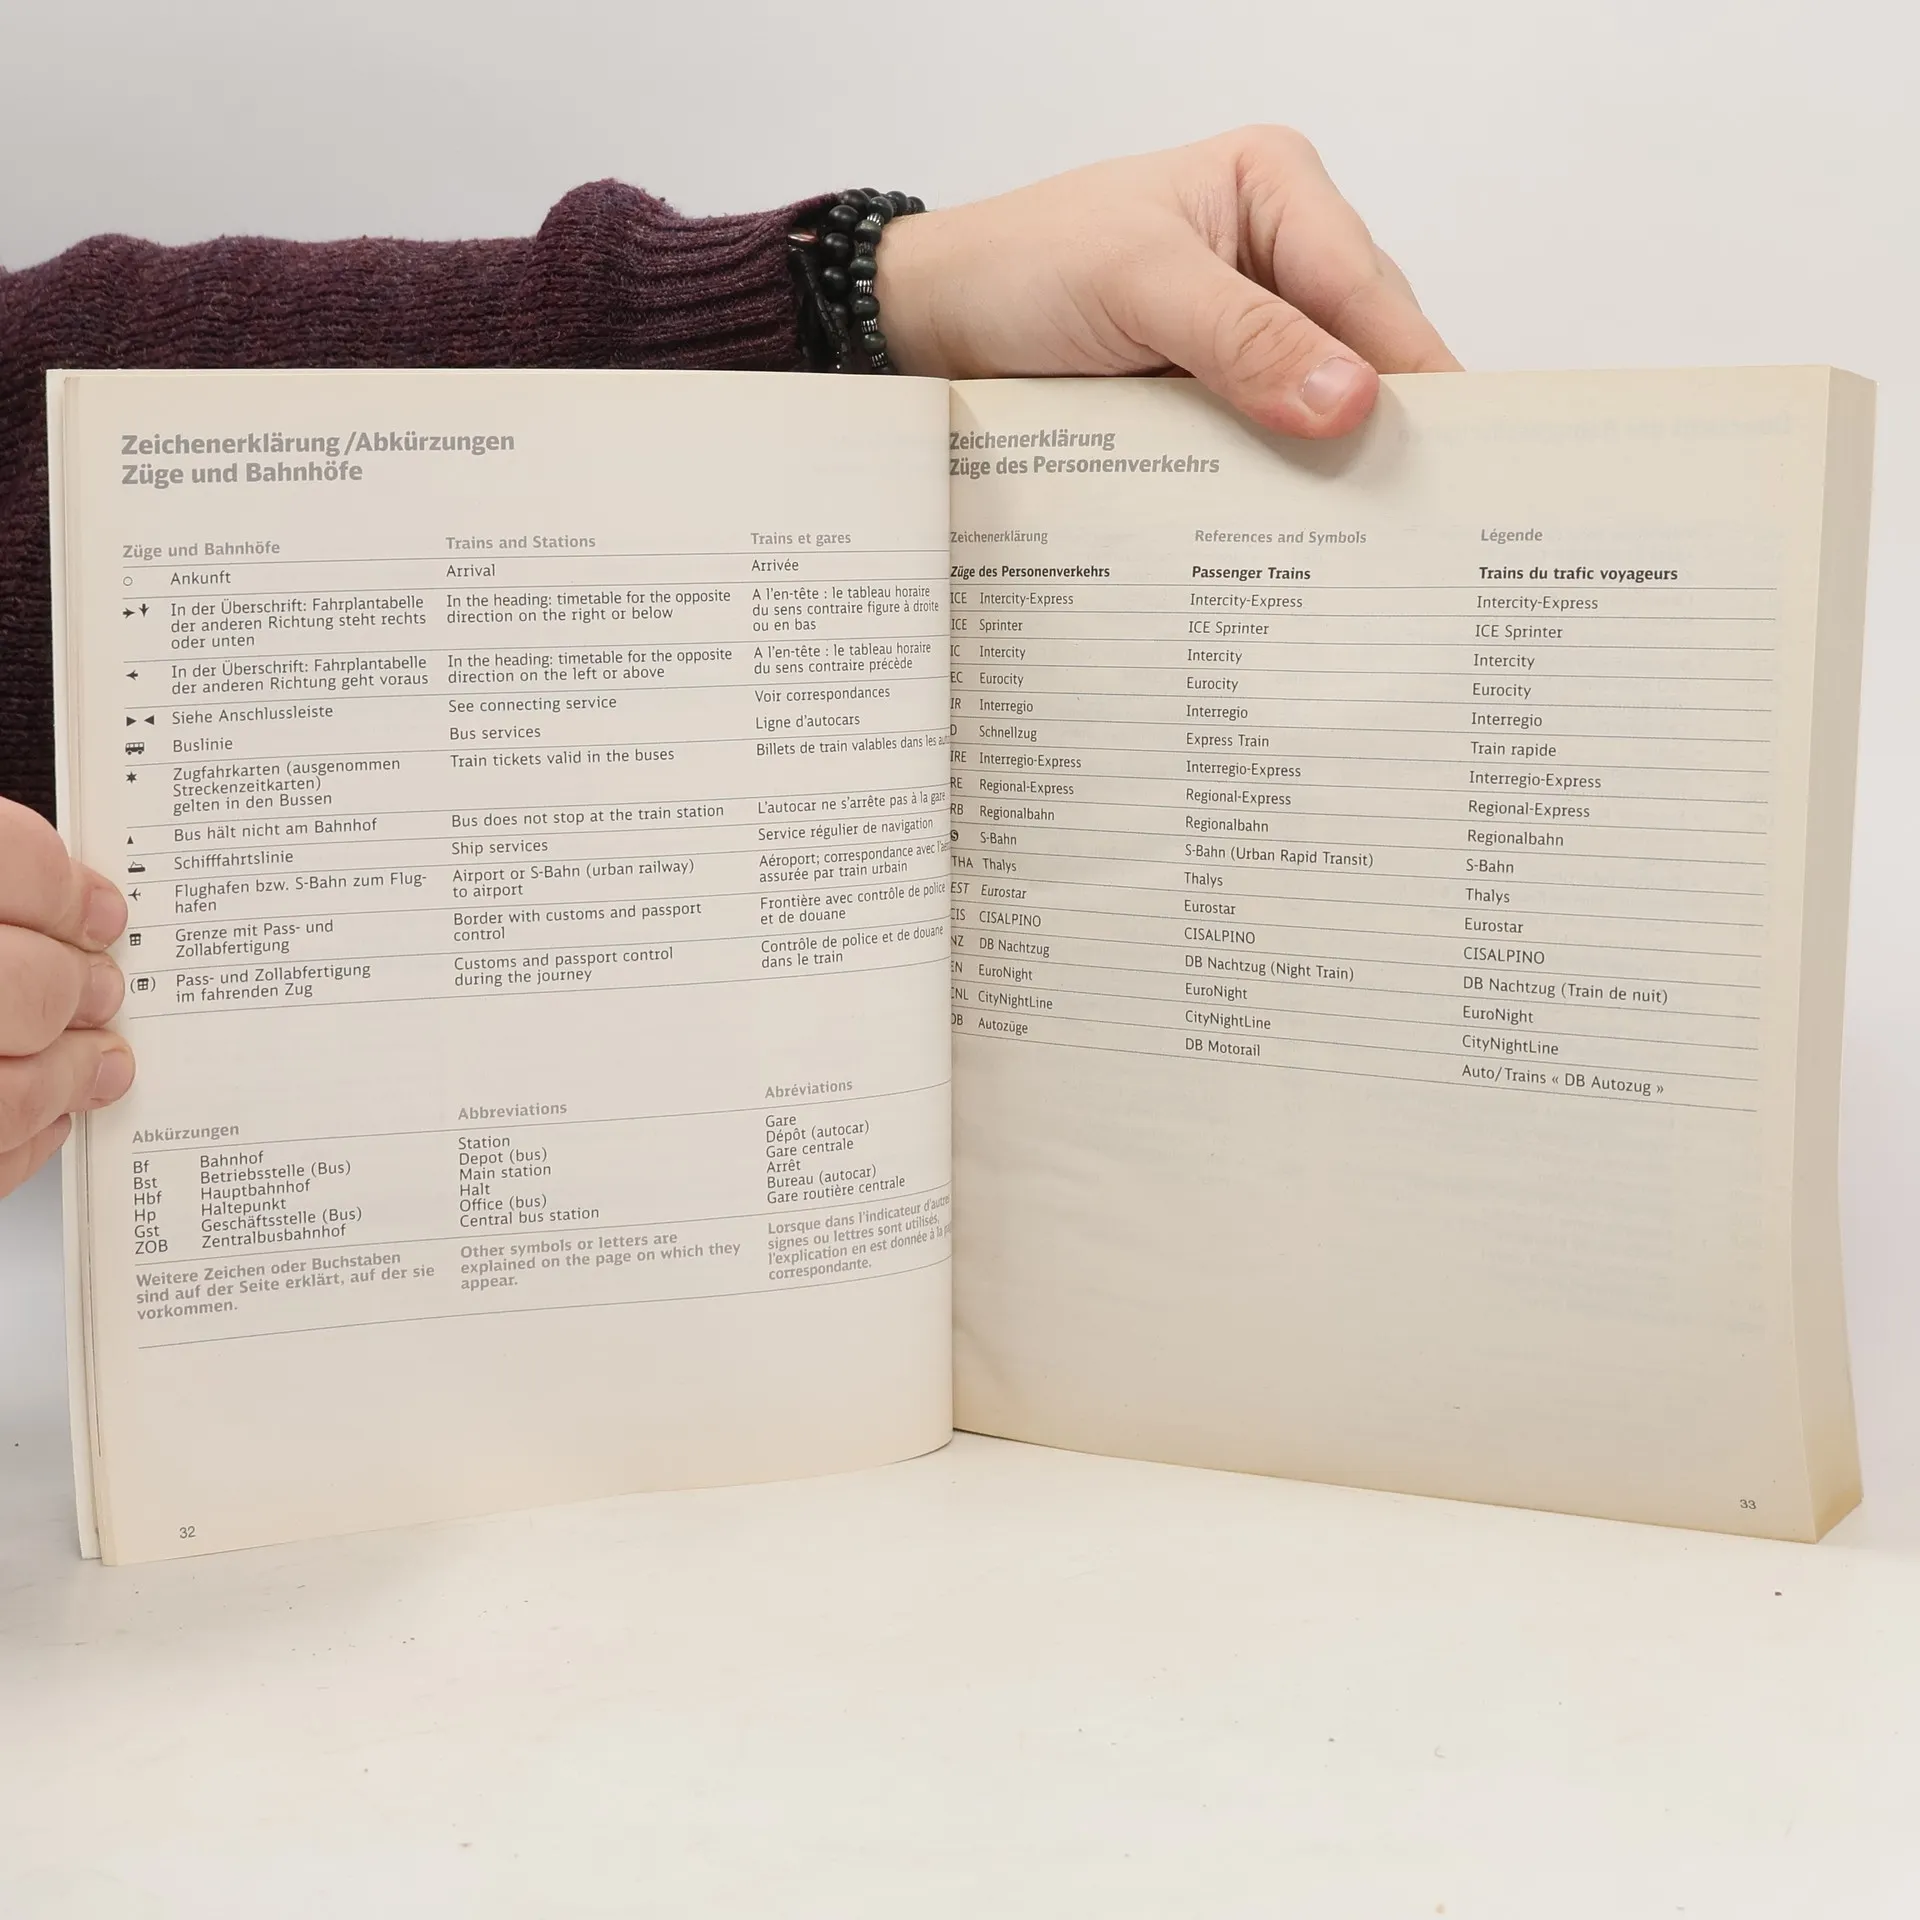 Zeichenerklärung/Abkürzungen
Züge und Bahnhöfe
Züge und Bahnhöfe Trains and Stations Trains et gares
Ankunft Arrival Arrivée
In der Überschrift: Fahrplantabelle
der anderen Richtung steht rechts
oder unten
In the heading: timetable for the opposite
direction on the right or below
A l'en-tête : le tableau horaire
du sens contraire figure à droite
ou en bas
In der Überschrift: Fahrplantabelle
der anderen Richtung geht voraus
In the heading: timetable for the opposite
direction on the left or above
A l'en-tête : le tableau horaire
du sens contraire précède
Siehe Anschlussleiste See connecting service Voir correspondances
Buslinie Bus services Ligne d'autocars
Zugfahrkarten (ausgenommen
Streckenzeitkarten)
gelten in den Bussen
Train tickets valid in the buses
Billets de train valables dans les
Bus hält nicht am Bahnhof Bus does not stop at the train station L'autocar ne s'arrête pas à la gare
Schifffahrtslinie Ship services Service régulier de navigation
Flughafen bzw. S-Bahn zum Flug-
hafen
Airport or S-Bahn (urban railway)
to airport
Aéroport; correspondance avec
assurée par train urbain
Grenze mit Pass- und
Zollabfertigung
Border with customs and passport
control
Frontière avec contrôle de police
et de douane
Pass- und Zollabfertigung
im fahrenden Zug
Customs and passport control
during the journey
Contrôle de police et de douane
dans le train
Abkürzungen Abbreviations Abréviations
Bf Bahnhof Station Gare
Bst Betriebsstelle (Bus) Depot (bus) Dépôt (autocar)
Hbf Hauptbahnhof Main station Gare centrale
Hp Haltepunkt Halt Arrêt
Gst Geschäftsstelle (Bus) Office (bus) Bureau (autocar)
ZOB Zentralbusbahnhof Central bus station Gare routière centrale
Weitere Zeichen oder Buchstaben
sind auf der Seite erklärt, auf der sie
vorkommen.
Other symbols or letters are
explained on the page on which they
appear.
Lorsque dans l'indicateur d'autres
signes ou lettres sont utilisés,
l'explication en est donnée à la
correspondante.
32
Zeichenerklärung
Züge des Personenverkehrs
Zeichenerklärung References and Symbols Légende
Züge des Personenverkehrs Passenger Trains Trains du trafic voyageurs
ICE Intercity-Express Intercity-Express Intercity-Express
ICE Sprinter ICE Sprinter ICE Sprinter
IC Intercity Intercity Intercity
EC Eurocity Eurocity Eurocity
IR Interregio Interregio Interregio
D Schnellzug Express Train Train rapide
IRE Interregio-Express Interregio-Express Interregio-Express
RE Regional-Express Regional-Express Regional-Express
RB Regionalbahn Regionalbahn Regionalbahn
S S-Bahn S-Bahn (Urban Rapid Transit) S-Bahn
THA Thalys Thalys Thalys
EST Eurostar Eurostar Eurostar
CIS CISALPINO CISALPINO CISALPINO
NZ DB Nachtzug DB Nachtzug (Night Train) DB Nachtzug (Train de nuit)
EN EuroNight EuroNight EuroNight
CNL CityNightLine CityNightLine CityNightLine
DB Autozüge DB Motorail Auto/Trains « DB Autozug »
33